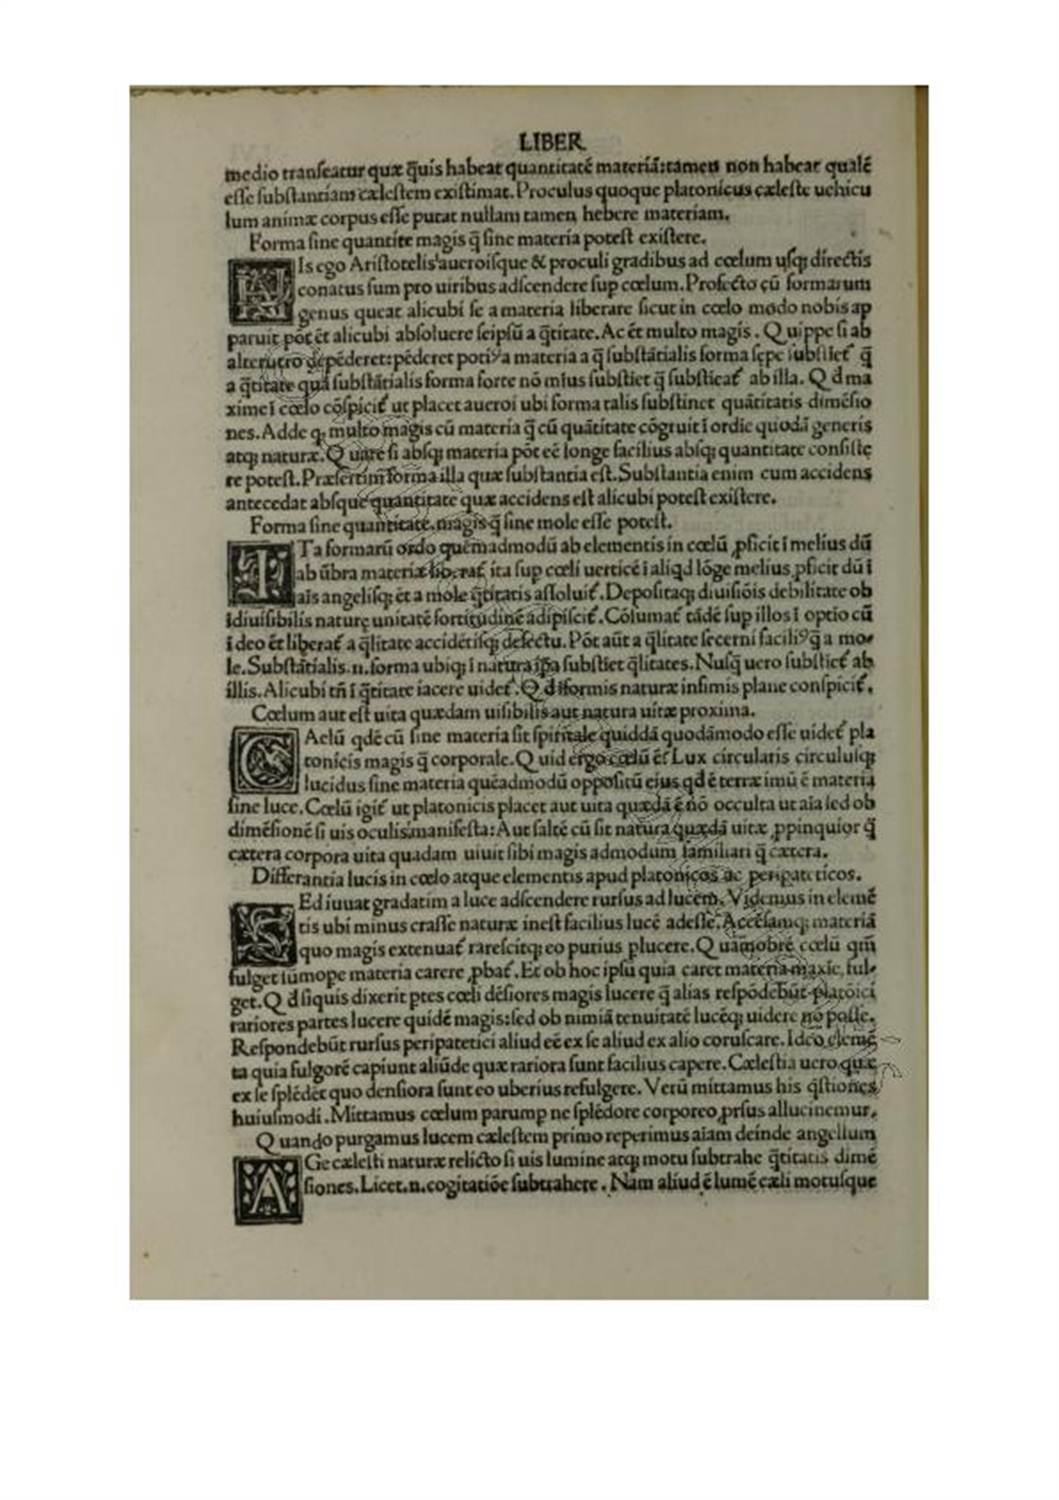 LIBER
medio transeatur quæ q̃uis habeat quantitatē materiā:tamen non habeat qualē
esse substantiam cælestem existimat.Proculus quoque platonicus cæleste uehicu
lum animæ corpus esse putat nullam tamen hebere materiam.
Forma sine quantite magis q̃ sine materia potest existere.
HIs ego Aristotelis aueroisque & proculi gradibus ad cœlum usq; directis
conatus sum pro uiribus adscendere sup cœlum.Profecto cū formarum
genus queat alicubi se a materia liberare sicut in cœlo modo nobis ap
paruit pōt ēt alicubi absoluere seipsū a q̃titate.Ac ēt multo magis. Quippe si ab
alterutro depēderet:pēderet potiꝰ a materia a q̃ substātialis forma sępe substiet q̃
a q̃titate quā substātialis forma forte nō mīus substiet q̃ substīeat ab illa. Qd ma
xime ī cœlo cōspicit ut placet aueroi ubi forma talis substinet quātitatis dimēsio
nes.Adde q multo magis cū materia q̃ cū quātitate cōgruit ī ordīe quodā generis
atq; naturæ.Quare si absq; materia pōt eē longe facilius absq; quantitate consistę
re potest.Præsertim forma illa quæ substantia est.Substantia enim cum accidens
antecedat absque quantitate quæ accidens est alicubi potest existere.
Forma sine quantitate.magis q̃ sine mole esse potest.
ITa formarū ordo quēmadmodū ab elementis in cœlū ꝓficit ī melius dū
ab ūbra materiæ liberat ita sup cœli uerticē ī aliqd lōge melius ꝓficit dū ī
aīs angelisq; ēt a mole q̃titatis assoluit.Depositaq; diuisiōis debilitate ob
īdiuisibilis naturę unitatē fortitudinē adipiscit.Cōlumat tādē sup illos ī optio cū
ī deo ēt liberat a q̃litate accidētisq; defectu.Pōt aūt a q̃litate secerni faciliꝰ q̃ a mo-
le.Substātialis.n.forma ubiq; ī natura ipa substiet q̃litates.Nusq̃ uero substiet ab
illis.Alicubi tñ ī q̃titate iacere uidet.Qd īformis naturæ infimis plane conspicit.
Cœlum aut est uita quædam uisibilis aut natura uitæ proxima.
CAelū qdē cū sine materia sit spiritale quiddā quodāmodo esse uidet pla
tonicis magis q̃ corporale.Quid ergo cœlū ēt Lux circularis circulusq;
lucidus sine materia quēadmodū oppositū eius qd ē terræ imū ē materia
sine luce.Cœlū igit ut platonicis placet aut uita quædā ē nō occulta ut aīa sed ob
dimēsionē si uis oculis manifesta:Aut saltē cū sit natura quædā uitæ ꝓpinquior q̃
cætera corpora uita quadam uiuit sibi magis admodum familiari q̃ cætera.
Differantia lucis in cœlo atque elementis apud platonicos ac peripateticos.
SEd iuuat gradatim a luce adscendere rursus ad lucem.Videmus in elemē
tis ubi minus crasse naturæ inest facilius lucē adesse.Accēsamq; materiā
quo magis extenuat rarescitq; eo purius plucere.Quāobrē cœlū qm̄
fulget sūmope materia carere ꝓbat.Et ob hoc ipsū quia caret materia maxīe, ful-
get.Qd siquis dixerit ptes cœli dēsiores magis lucere q̃ alias respōdebūt platōici
rariores partes lucere quidē magis:sed ob nimiā tenuitatē lucēq; uidere nō posse.
Respondebūt rursus peripatetici aliud eē ex se aliud ex alio coruscare.Ideo elemē
ta quia fulgorē capiunt aliūde quæ rariora sunt facilius capere.Cælestia uero quæ
ex se splēdēt quo densiora sunt eo uberius refulgere. Verū mittamus his q̃stiones
huiusmodi.Mittamus cœlum parump ne splēdore corporeo ꝓrsus allucinemur.
Quando purgamus lucem cælestem primo reperimus aīam deinde angelum
AGe cælesti naturæ relicto si uis lumine atq; motu subtrahe q̃titatis dimē
siones.Licet.n.cogitatiōe subtrahere. Nam aliud ē lumē cæli motusque